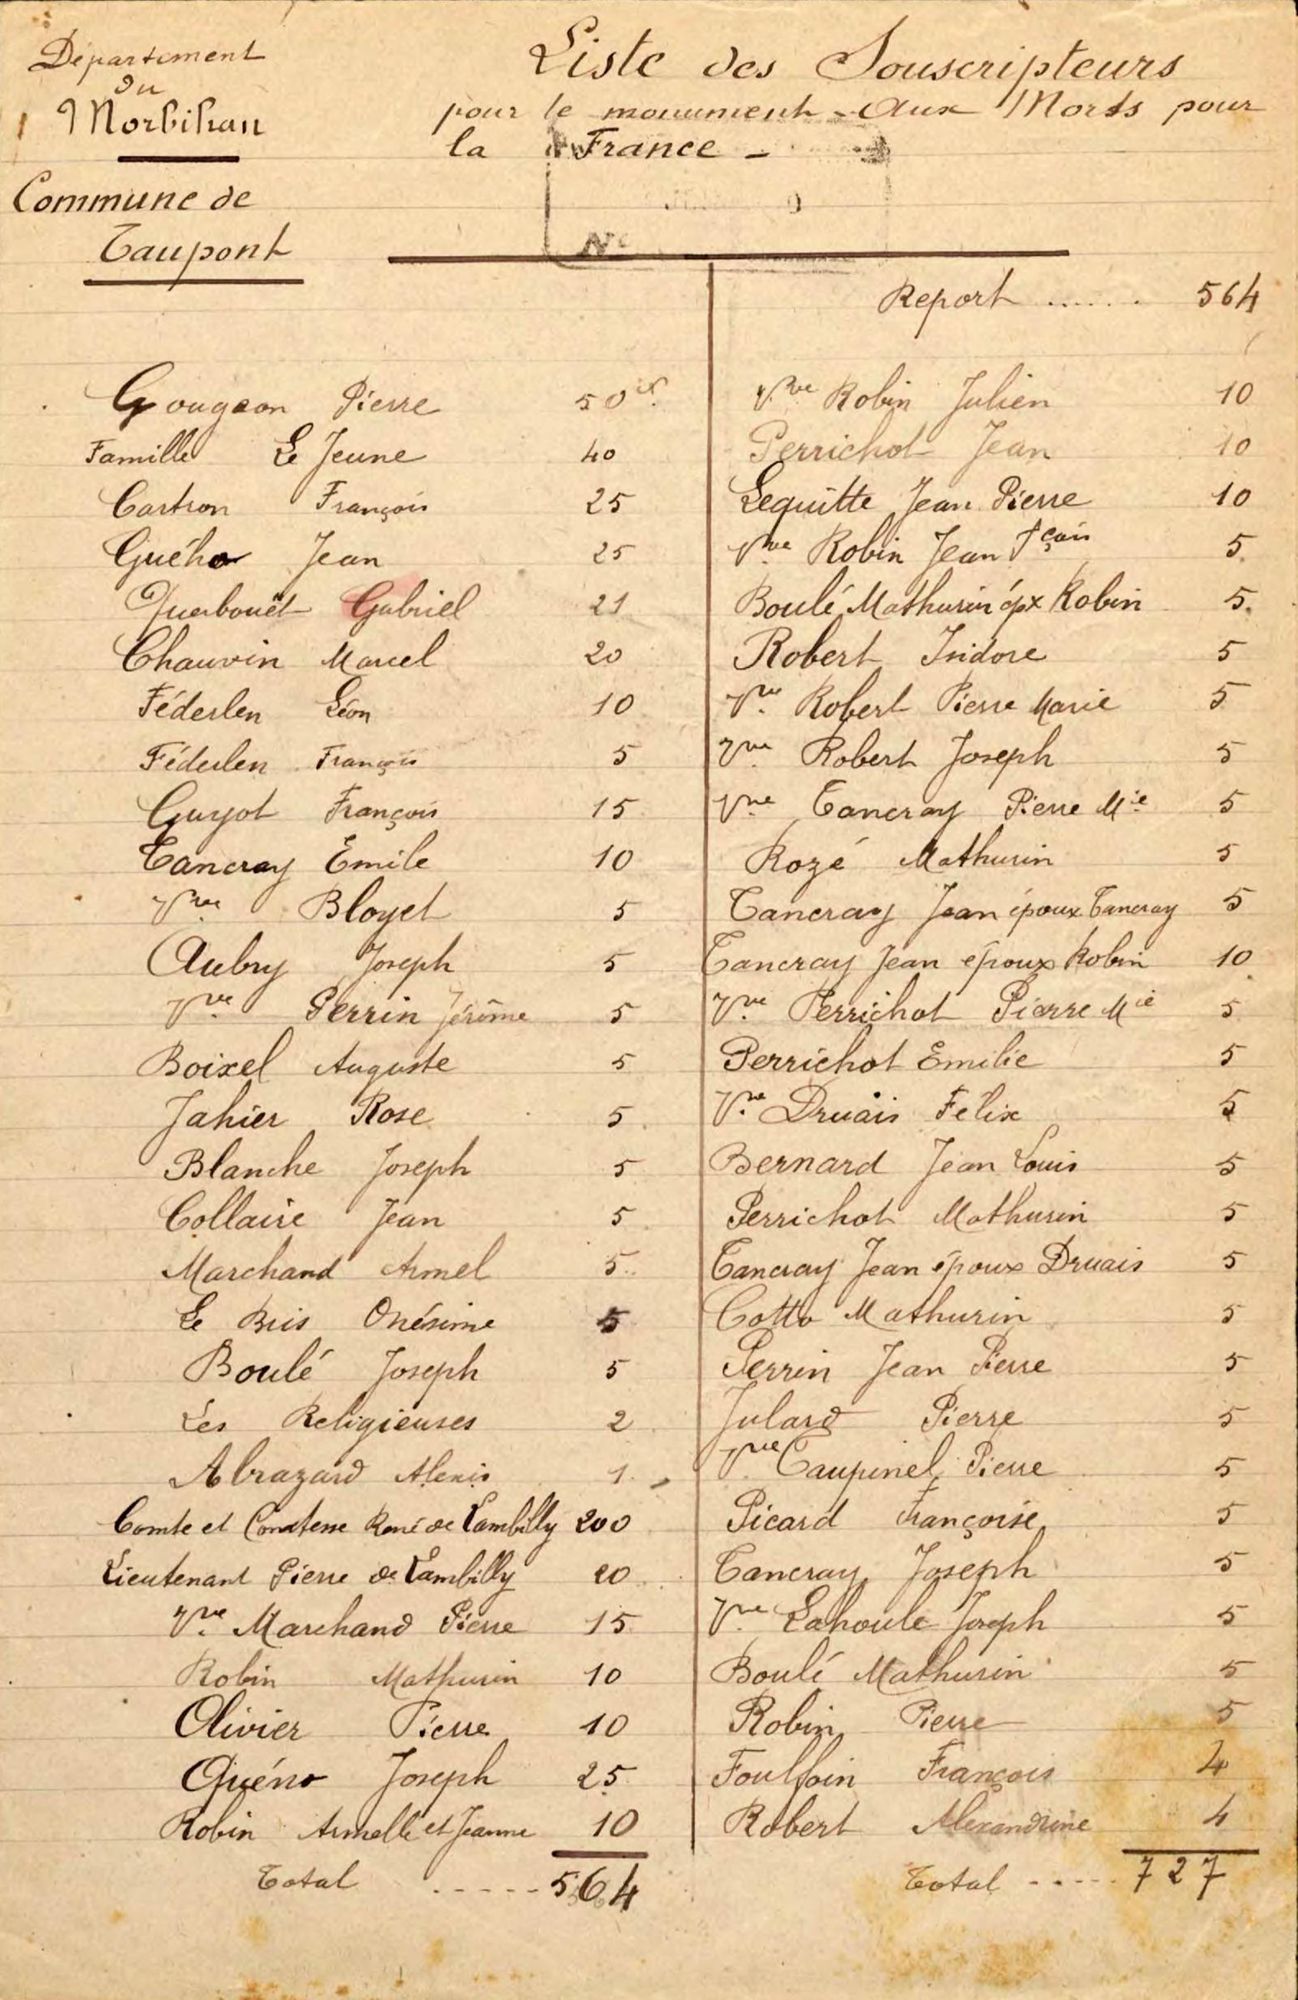 Département
du
Morbihan
Commune de
Taupont
Liste des Souscripteurs
pour le monument - aux Morts pour
la France -
Nº
Gougeon Pierre 50
Famille Le Jeune 40
Cartron François 25
Guého Jean 25
Querbouët Gabriel 21
Chauvin Marcel 20
Féderlen Léon 10
Féderlen François 5
Guyot François 15
Tancray Emile 10
Vve Bloyet 5
Aubry Joseph 5
Vve Perrin Jérôme 5
Boixel Auguste 5
Jahier Rose 5
Blanche Joseph 5
Collaire Jean 5
Marchand Armel 5
Le Bris Onésime 5
Boulé Joseph 5
Les Religieuses 2
Abrazard Alexis 1
Comte et Comtesse René de Lambilly 200
Lieutenant Pierre de Lambilly 20
Vve Marchand Pierre 15
Robin Mathurin 10
Olivier Pierre 10
Guéno Joseph 25
Robin Armelle et Jeanne 10
Total ..... 564
Report ...... 564
Vve Robin Julien 10
Perrichot Jean 10
Lequitte Jean Pierre 10
Vve Robin Jean Fçois 5
Boulé Mathurin épx Robin 5
Robert Isidore 5
Vve Robert Pierre Marie 5
Vve Robert Joseph 5
Vve Tancray Pierre Mie 5
Rozé Mathurin 5
Tancray Jean époux Tancray 5
Tancray Jean époux Robin 10
Vve Perrichot Pierre Mie 5
Perrichot Emilie 5
Vve Druais Félix 5
Bernard Jean Louis 5
Perrichot Mathurin 5
Tancray Jean époux Druais 5
Cotto Mathurin 5
Perrin Jean Pierre 5
Julard Pierre 5
Vve Taupinel Pierre 5
Picard Françoise 5
Tancray Joseph 5
Vve Lahoule Joseph 5
Boulé Mathurin 5
Robin Pierre 5
Foulfoin François 4
Robert Alexandrine 4
Total ..... 727